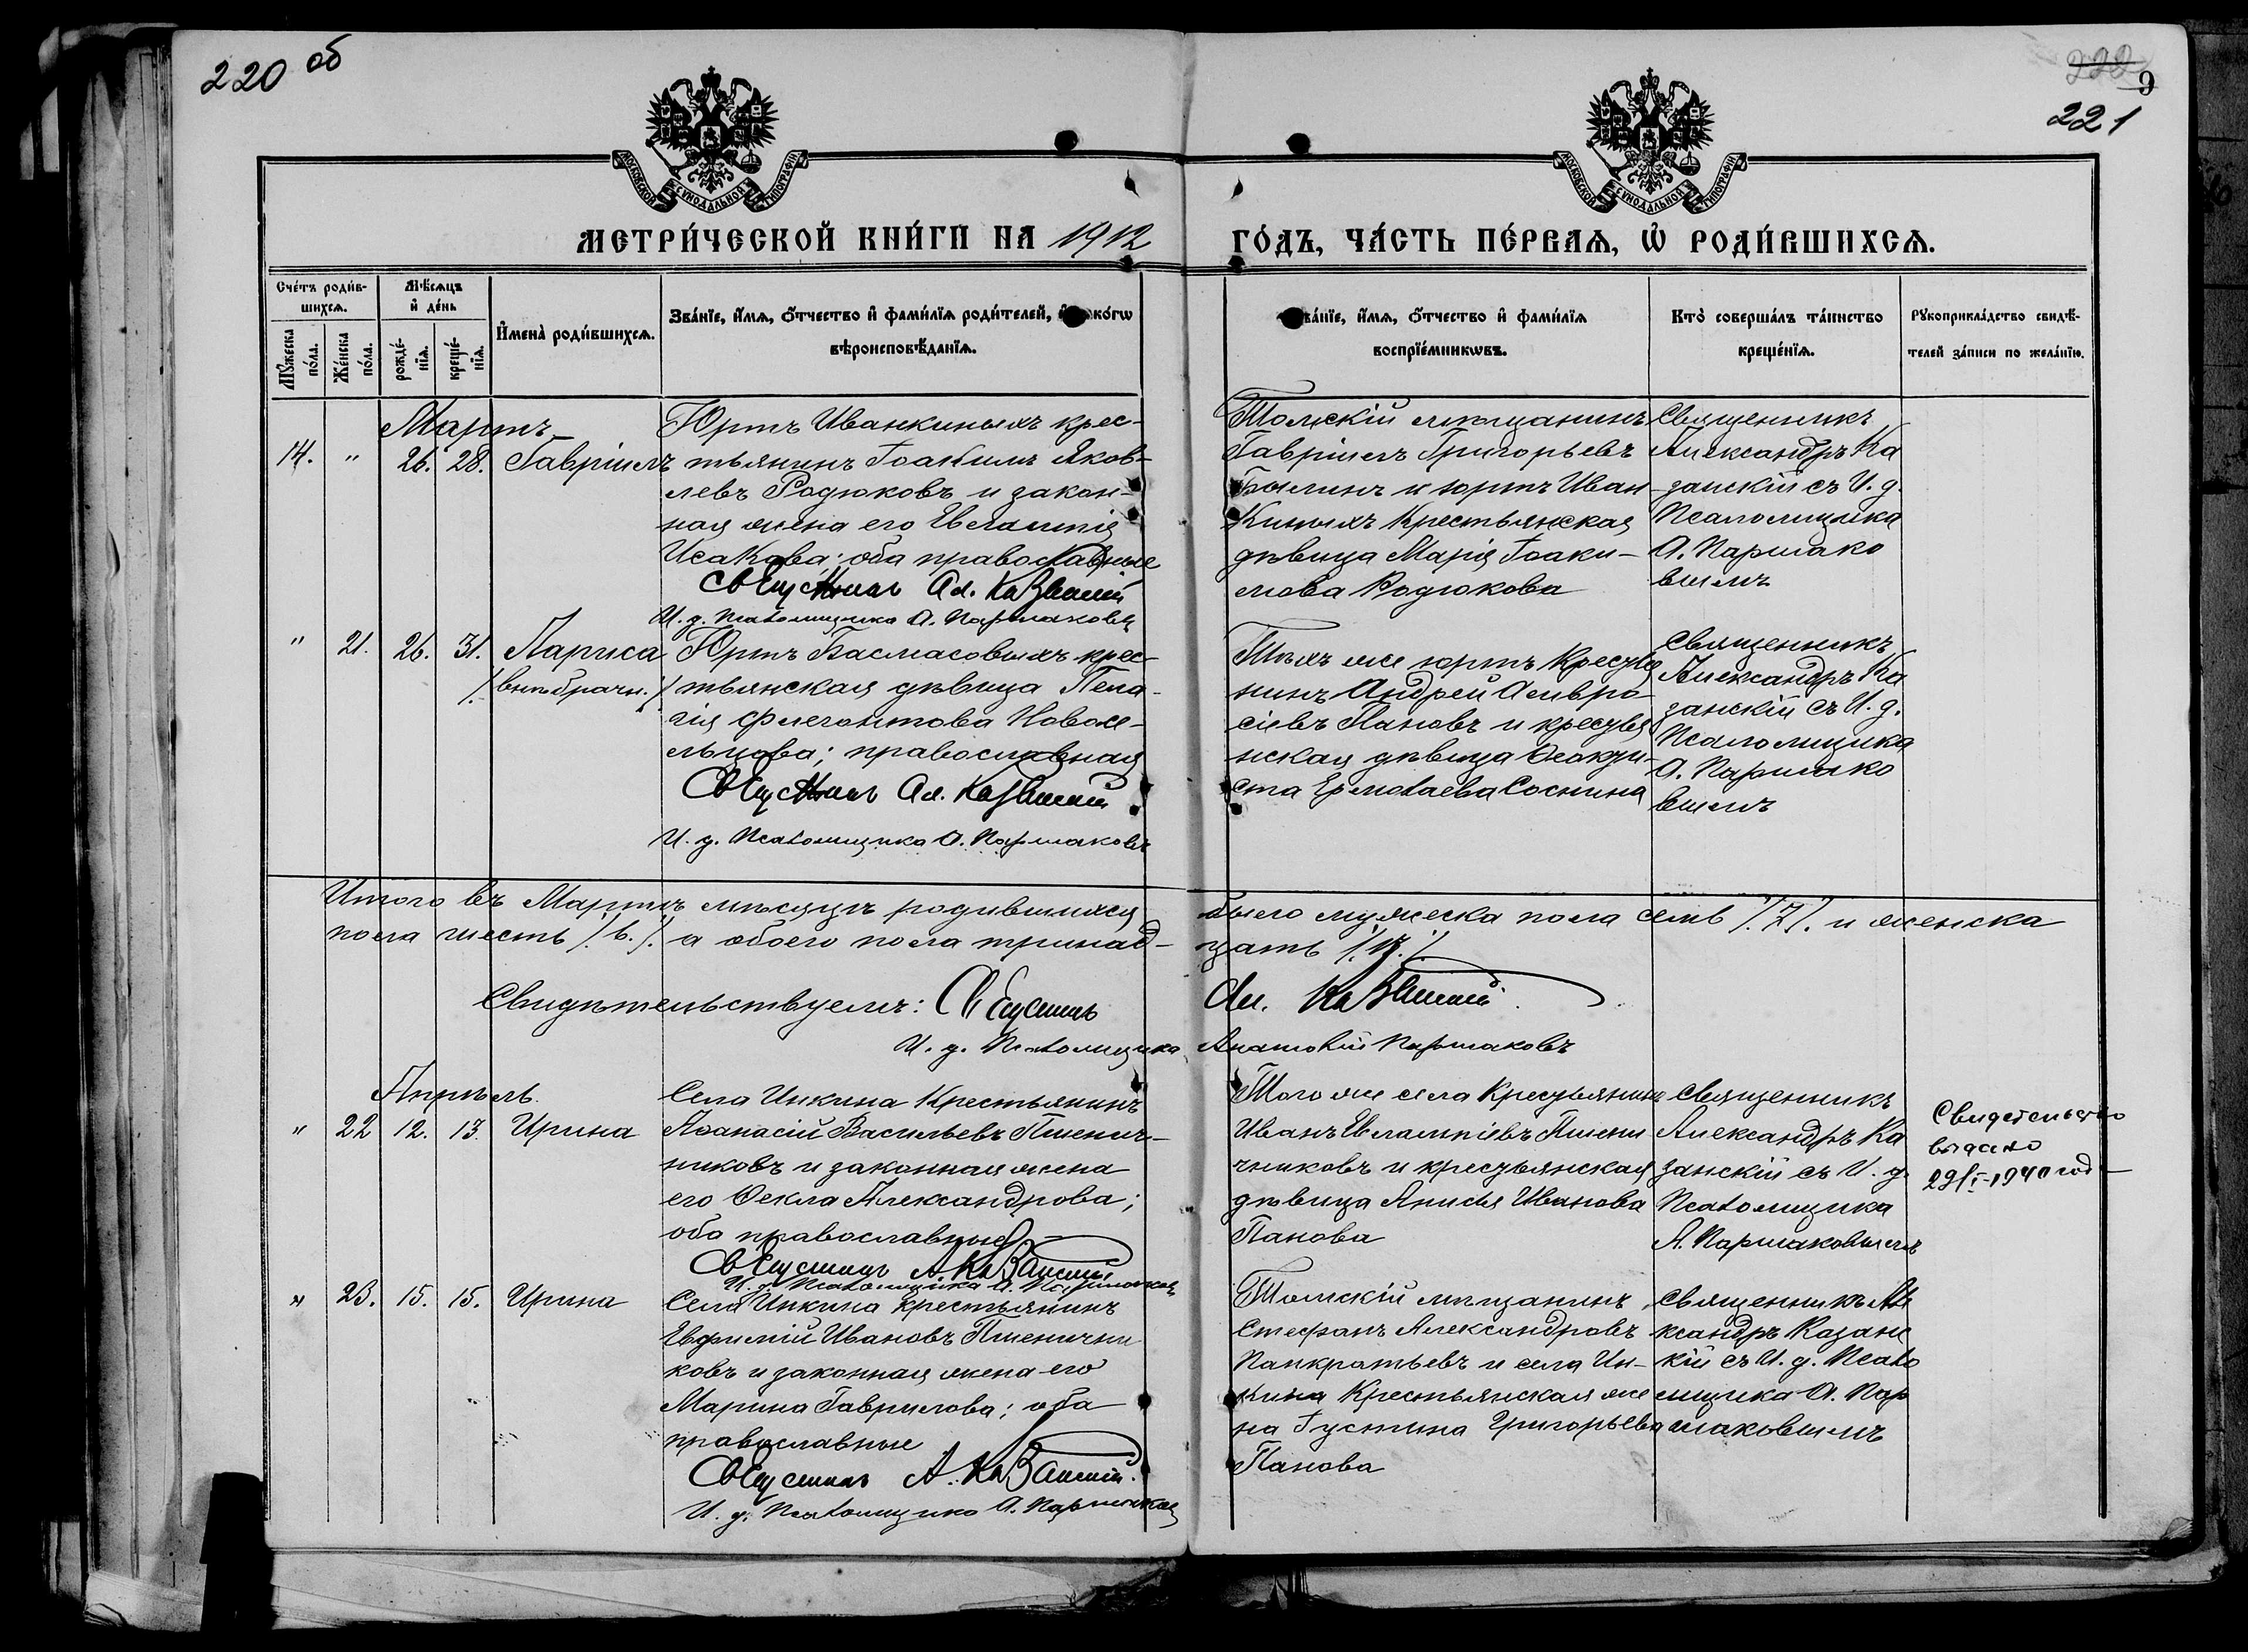 220 об
222
9
221
МОСКОВСКОЙ СѴНОДАЛЬНОЙ ТИПОГРАФІИ
МОСКОВСКОЙ СѴНОДАЛЬНОЙ ТИПОГРАФІИ
МЕТРИ́ЧЕСКОЙ КНИ́ГИ НА 1912 ГО́ДЪ, ЧА́СТЬ ПЕ́РВАѦ, Ѡ҆ РОДИ́ВШИХСѦ.
Сче́тъ роди́в-
шихсѧ.
Мѣ́сѧцъ
и҆ де́нь
И҆мена̀ роди́вшихсѧ.
Зва́нїе, и҆́мѧ, ѻ҆́тчество и҆ фами́лїѧ роди́телей, и҆ ко́гѡ
вѣроисповѣ́данїѧ.
Мꙋ́жеска
по́ла.
Же́нска
по́ла.
рожде́-
нїѧ.
креще́-
нїѧ.
ва́нїе, и҆́мѧ, ѻ҆́тчество и҆ фами́лїѧ
воспрїе́мникѡвъ.
Кто̀ соверша́лъ та́инство
креще́нїѧ.
Рꙋкоприкла́дство свидѣ́-
телей за́писи по жела́нїю.
Мартъ
14. " 26. 28. Гавріилъ
Юртъ Иванкиныхъ крес-
тьянинъ Іоакимъ Яков-
левъ Родюковъ и закон-
ная жена его Евлампія
Исакова; оба православные
Священникъ Ал. Казанскій
И. д. Псаломщика А. Паршаковъ
Томскій мѣщанинъ
Гавріилъ Григорьевъ
Былинъ и юртъ Иван
киныхъ крестьянская
дѣвица Марія Іоаки-
мова Родюкова
Священникъ
Александръ Ка
занскій съ И. д.
Псаломщика
А. Паршако
вымъ
" 21. 26. 31. Лариса
/. внѣбрачн. ./
Юртъ Басмасовыхъ крес-
тьянская дѣвица Пела-
гія Флегонтова Новосе-
льцова; православная
Священникъ Ал. Казанскій
И. д. Псаломщика А. Паршаковъ
Тѣхъ же юртъ Крестья
нинъ Андрей Амвро-
сіевъ Пановъ и крестья
нская дѣвица Ѳеокти-
ста Ермолаева Соснина
Священникъ
Александръ Ка
занскій съ И. д.
Псаломщика
А. Паршако
вымъ
Итого въ Мартѣ мѣсяцѣ родившихся было мужеска пола семь /.7./. и женска
пола шесть /.6./. а обоего пола тринад- цать /.13./.
Свидѣтельствуемъ: Священникъ Ал. Казанскій
И. д. Псаломщика Анатолій Паршаковъ
Апрѣль.
" 22 12. 13. Ирина
Села Инкина Крестьянинъ
Аѳанасій Васильевъ Пшенич-
никовъ и законная жена
его Ѳекла Александрова;
оба православные
Священникъ А Казанскій
И. д. Псаломщика А. Паршаковъ
Того же села Крестьянинъ
Иванъ Евлампіевъ Пшени
чниковъ и крестьянская
дѣвица Анисья Иванова
Панова
Священникъ
Александръ Ка
занскій съ И. д.
Псаломщика
А. Паршаковымъ
Свидетельство
выдано
29/I-1940 год
" 23. 15. 15. Ирина
Села Инкина крестьянинъ
Евфимій Ивановъ Пшенични
ковъ и законная жена его
Марина Гаврилова; оба
православные
Священникъ А. Казанскій.
И. д. Псаломщика А. Паршаковъ
Томскій мѣщанинъ
Стефанъ Александровъ
Панкратьевъ и села Ин-
кина Крестьянская же
на Іустина Григорьева
Панова
Священникъ Але
ксандръ Казанс
кій съ И. д. Псало
мщика А. Пар
шаковымъ